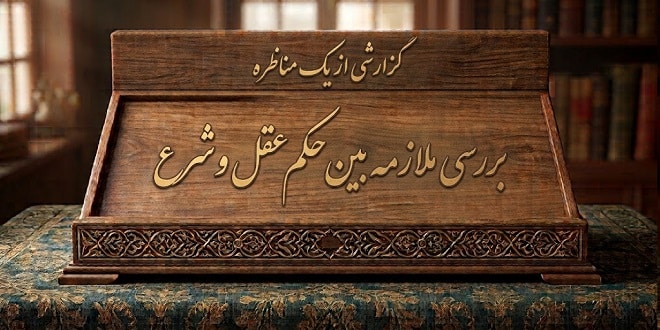 گزارشی از یک مناظره
بررسی ملازمه بین حکم عقل و شرع